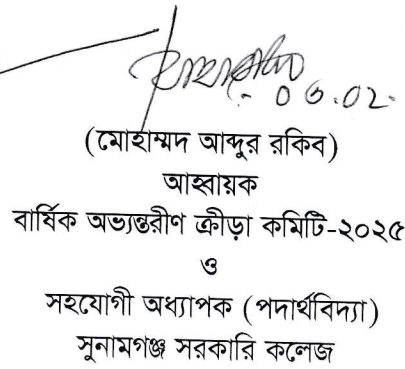 ০৩.০২.
(মোহাম্মদ আব্দুর রকিব)
আহ্বায়ক
বার্ষিক অভ্যন্তরীণ ক্রীড়া কমিটি-২০২৫
ও
সহযোগী অধ্যাপক (পদার্থবিদ্যা)
সুনামগঞ্জ সরকারি কলেজ